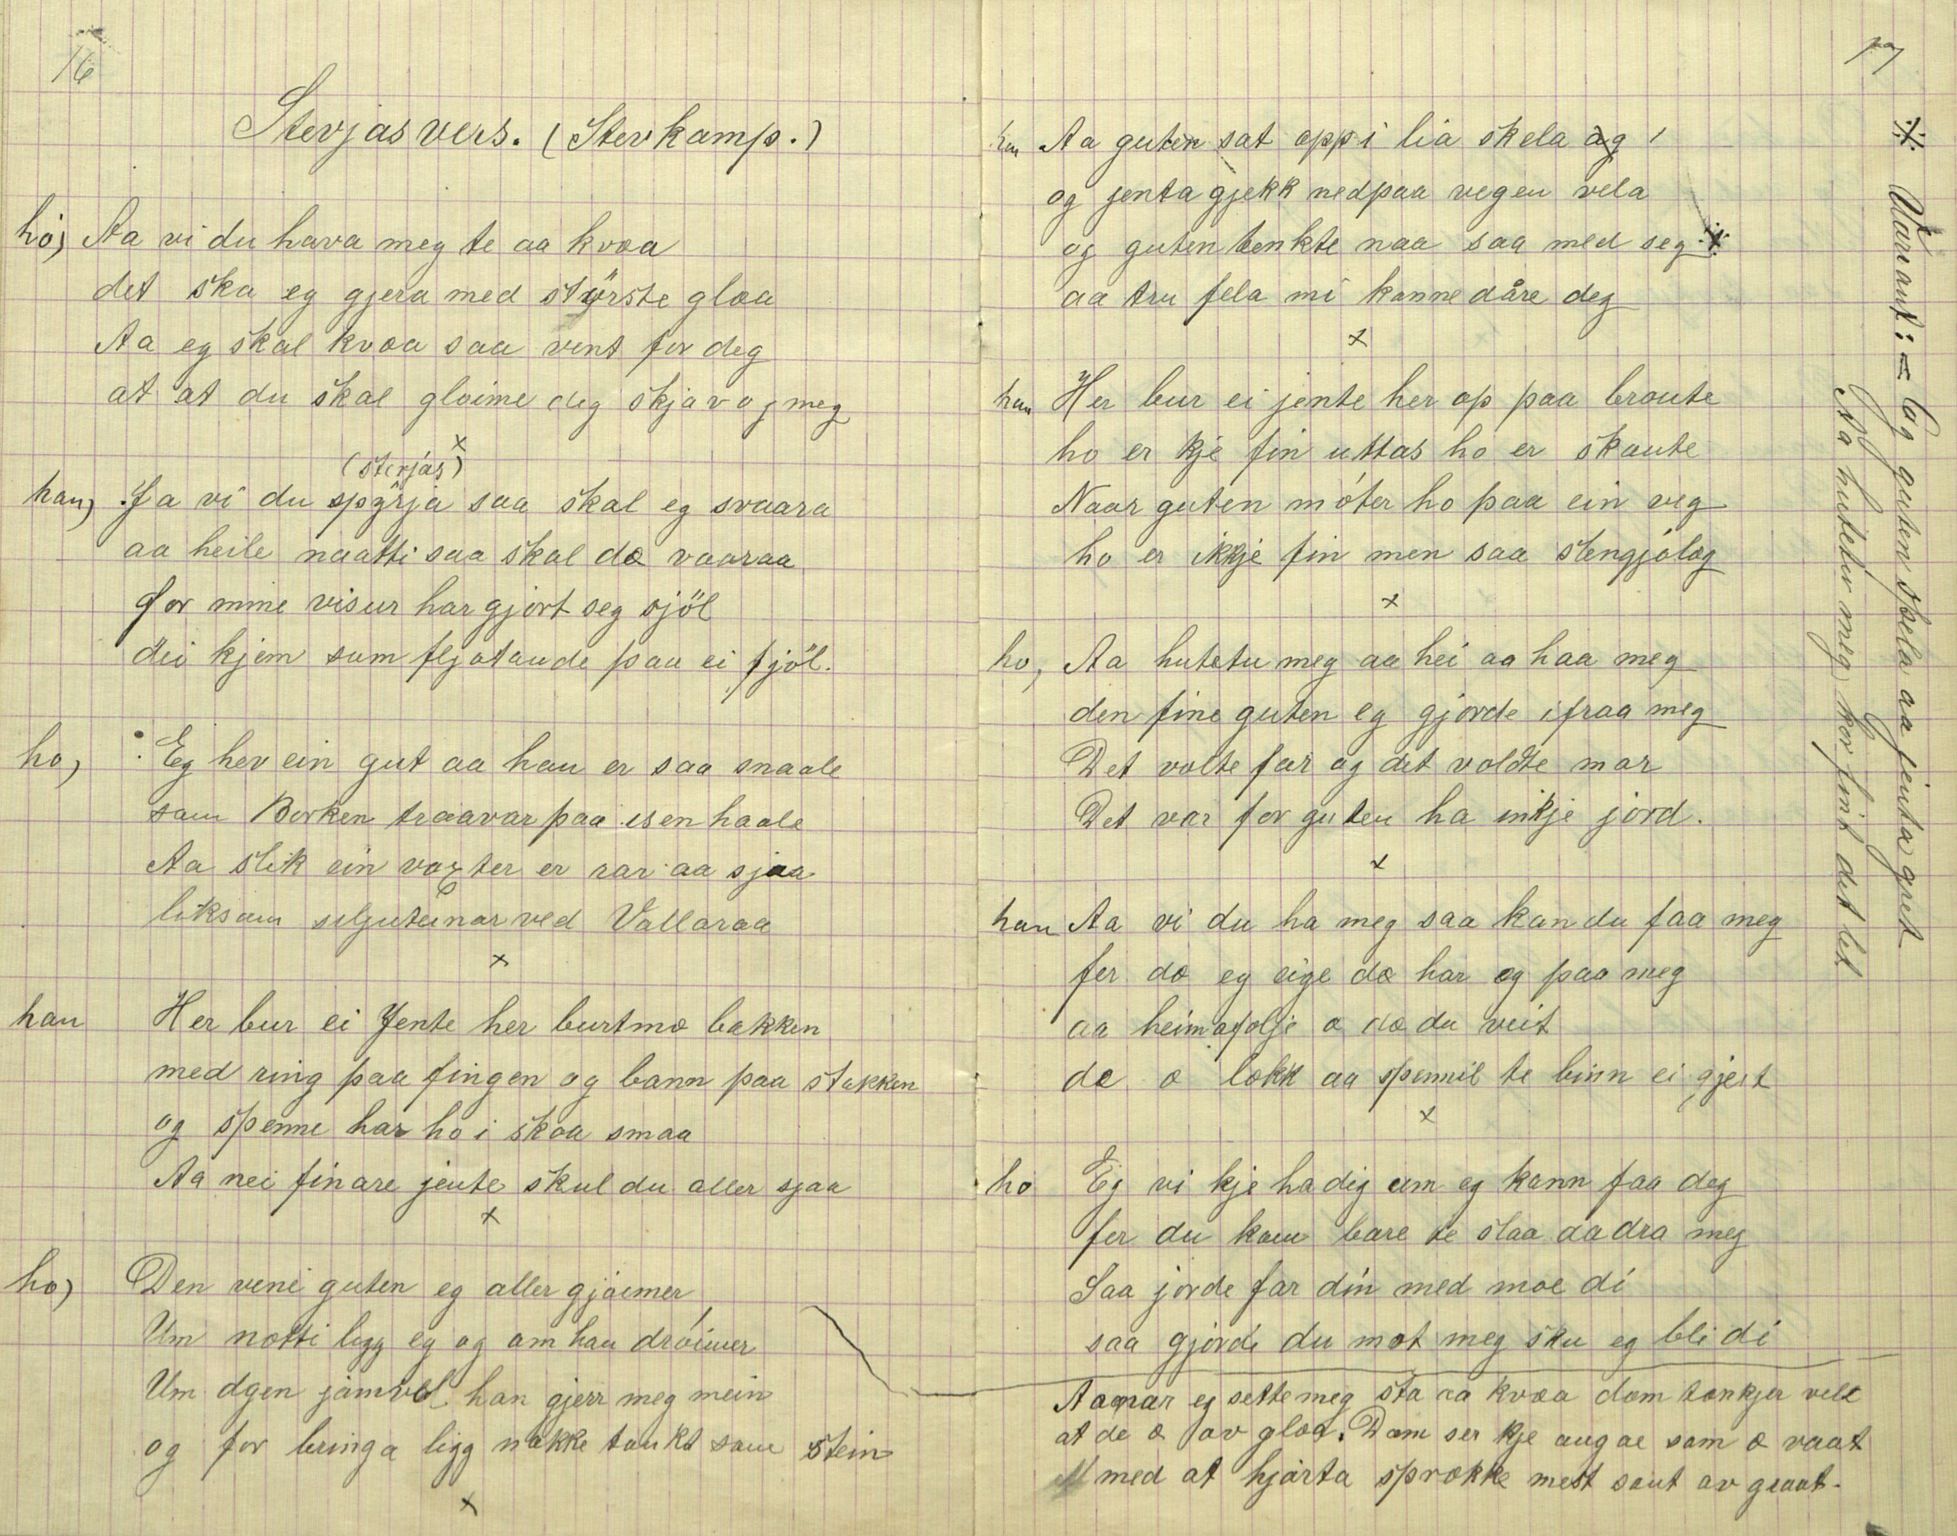 16
Stevjasvers. (Stevkamp.)
ho) Aa vi du hava meg te aa kvæa
det ska eg gjera med störste glæa
Aa eg skal kvæa saa vent for deg
at at du skal gløime deg skjøv og meg
(stevjas) x
han) Ja vi du spyrja saa skal eg svaara
aa heile naatti saa skal dæ vaaraa
for mine visur har gjort seg sjöl
dei kjem sum fljotande paa ei fjöl.
ho) : Eg hev ein gut aa han er saa snaale
sam Borken traavar paa isen haale
Aa slik ein vaxter er rar aa sjaa
liksom seljuteinar ved Vallaraa
x
han Her bur ei Jente her burtmæ bakken
med ring paa fingen og bann paa stakken
og spenne har ho i skoa smaa
Aa nei finare jente skul du aller sjaa
x
ho) Den veni guten eg aller gjøimer
Um notti ligg eg og om han dröimer
Um dgen jamvel han gjerr meg mein
og for bringa ligg nokke tunkt som stein
x
17
han Aa guten sat opp i lia skela og /
og jenta gjekk nedpaa vegen vela
og guten tenkte naa saa med seg ※
aa tru fela mi kanne dåre deg
x
han Her bur ei jente her op paa braute
ho er kje fin uttas ho er skaute
Naar guten möter ho paa ein veg
ho er ikkje fin men saa slengjoleg
x
ho, Aa hutetu meg aa hei aa haa meg
den fine guten eg gjorde ifraa meg
Det volte far og det voldte mor
Det var for guten ha inkje jord.
x
han Aa vi du ha meg saa kan du faa meg
fer dæ eg eige dæ har eg paa meg
aa heimafølje æ dæ du veit
dæ æ lokk aa spennil te binn ei gjeit
x
ho Eg vi kje ha dig um eg kann faa deg
fer du kom bare te slaa aa dra meg
Saa jorde far din med moe di
saa gjorde du mot meg sku eg bli di
Aa naar eg sette meg sta aa kvæa dom tænkjer velt
at de æ av glæa. Dom ser kje augae som æ vaat
med at hjarta sprække mest sout av graat.
※ Variant: = Og guten spela aa jenta gret
Aa hutetu meg, kor fint det let